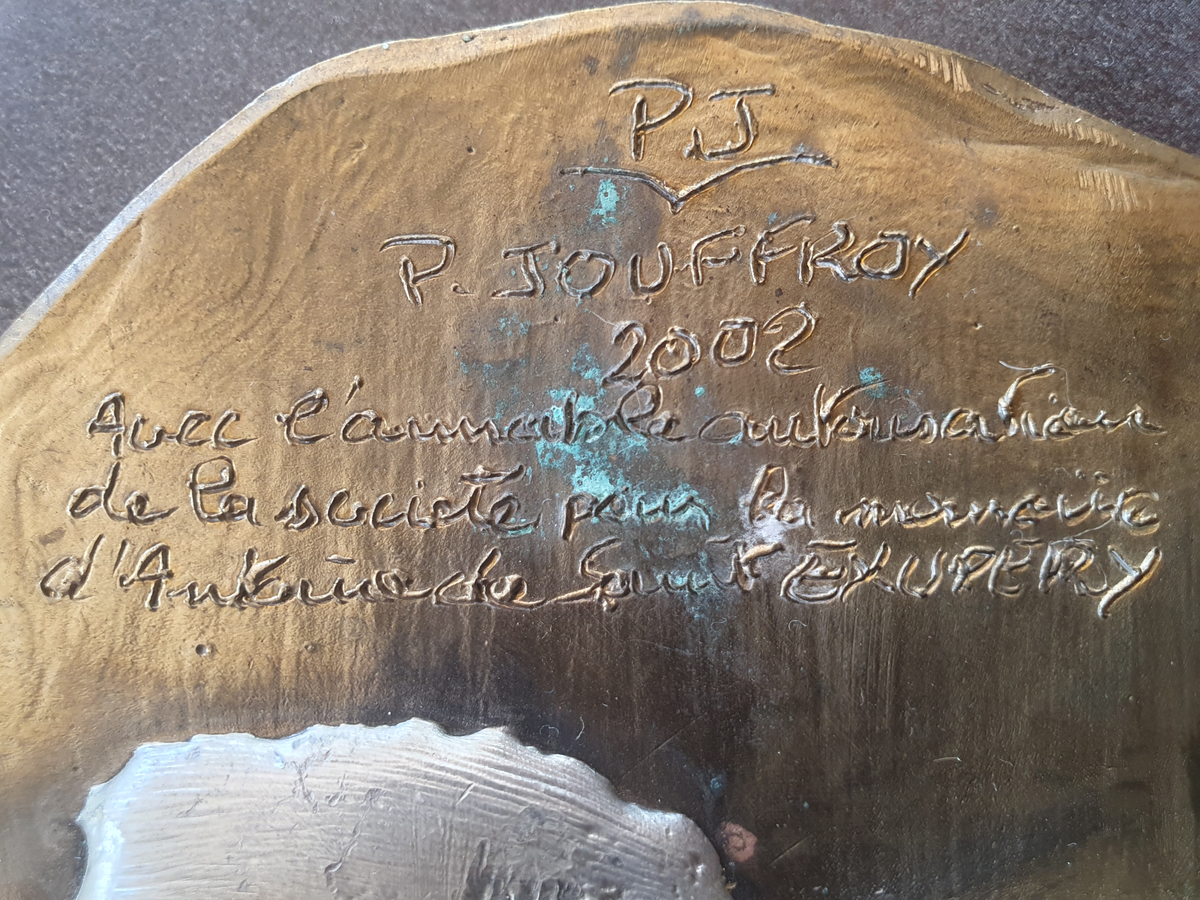 P.J
P. JOUFFROY
2002
Avec l'aimable autorisation
de la societé pour la memoire
d'Antoine de Saint EXUPERY